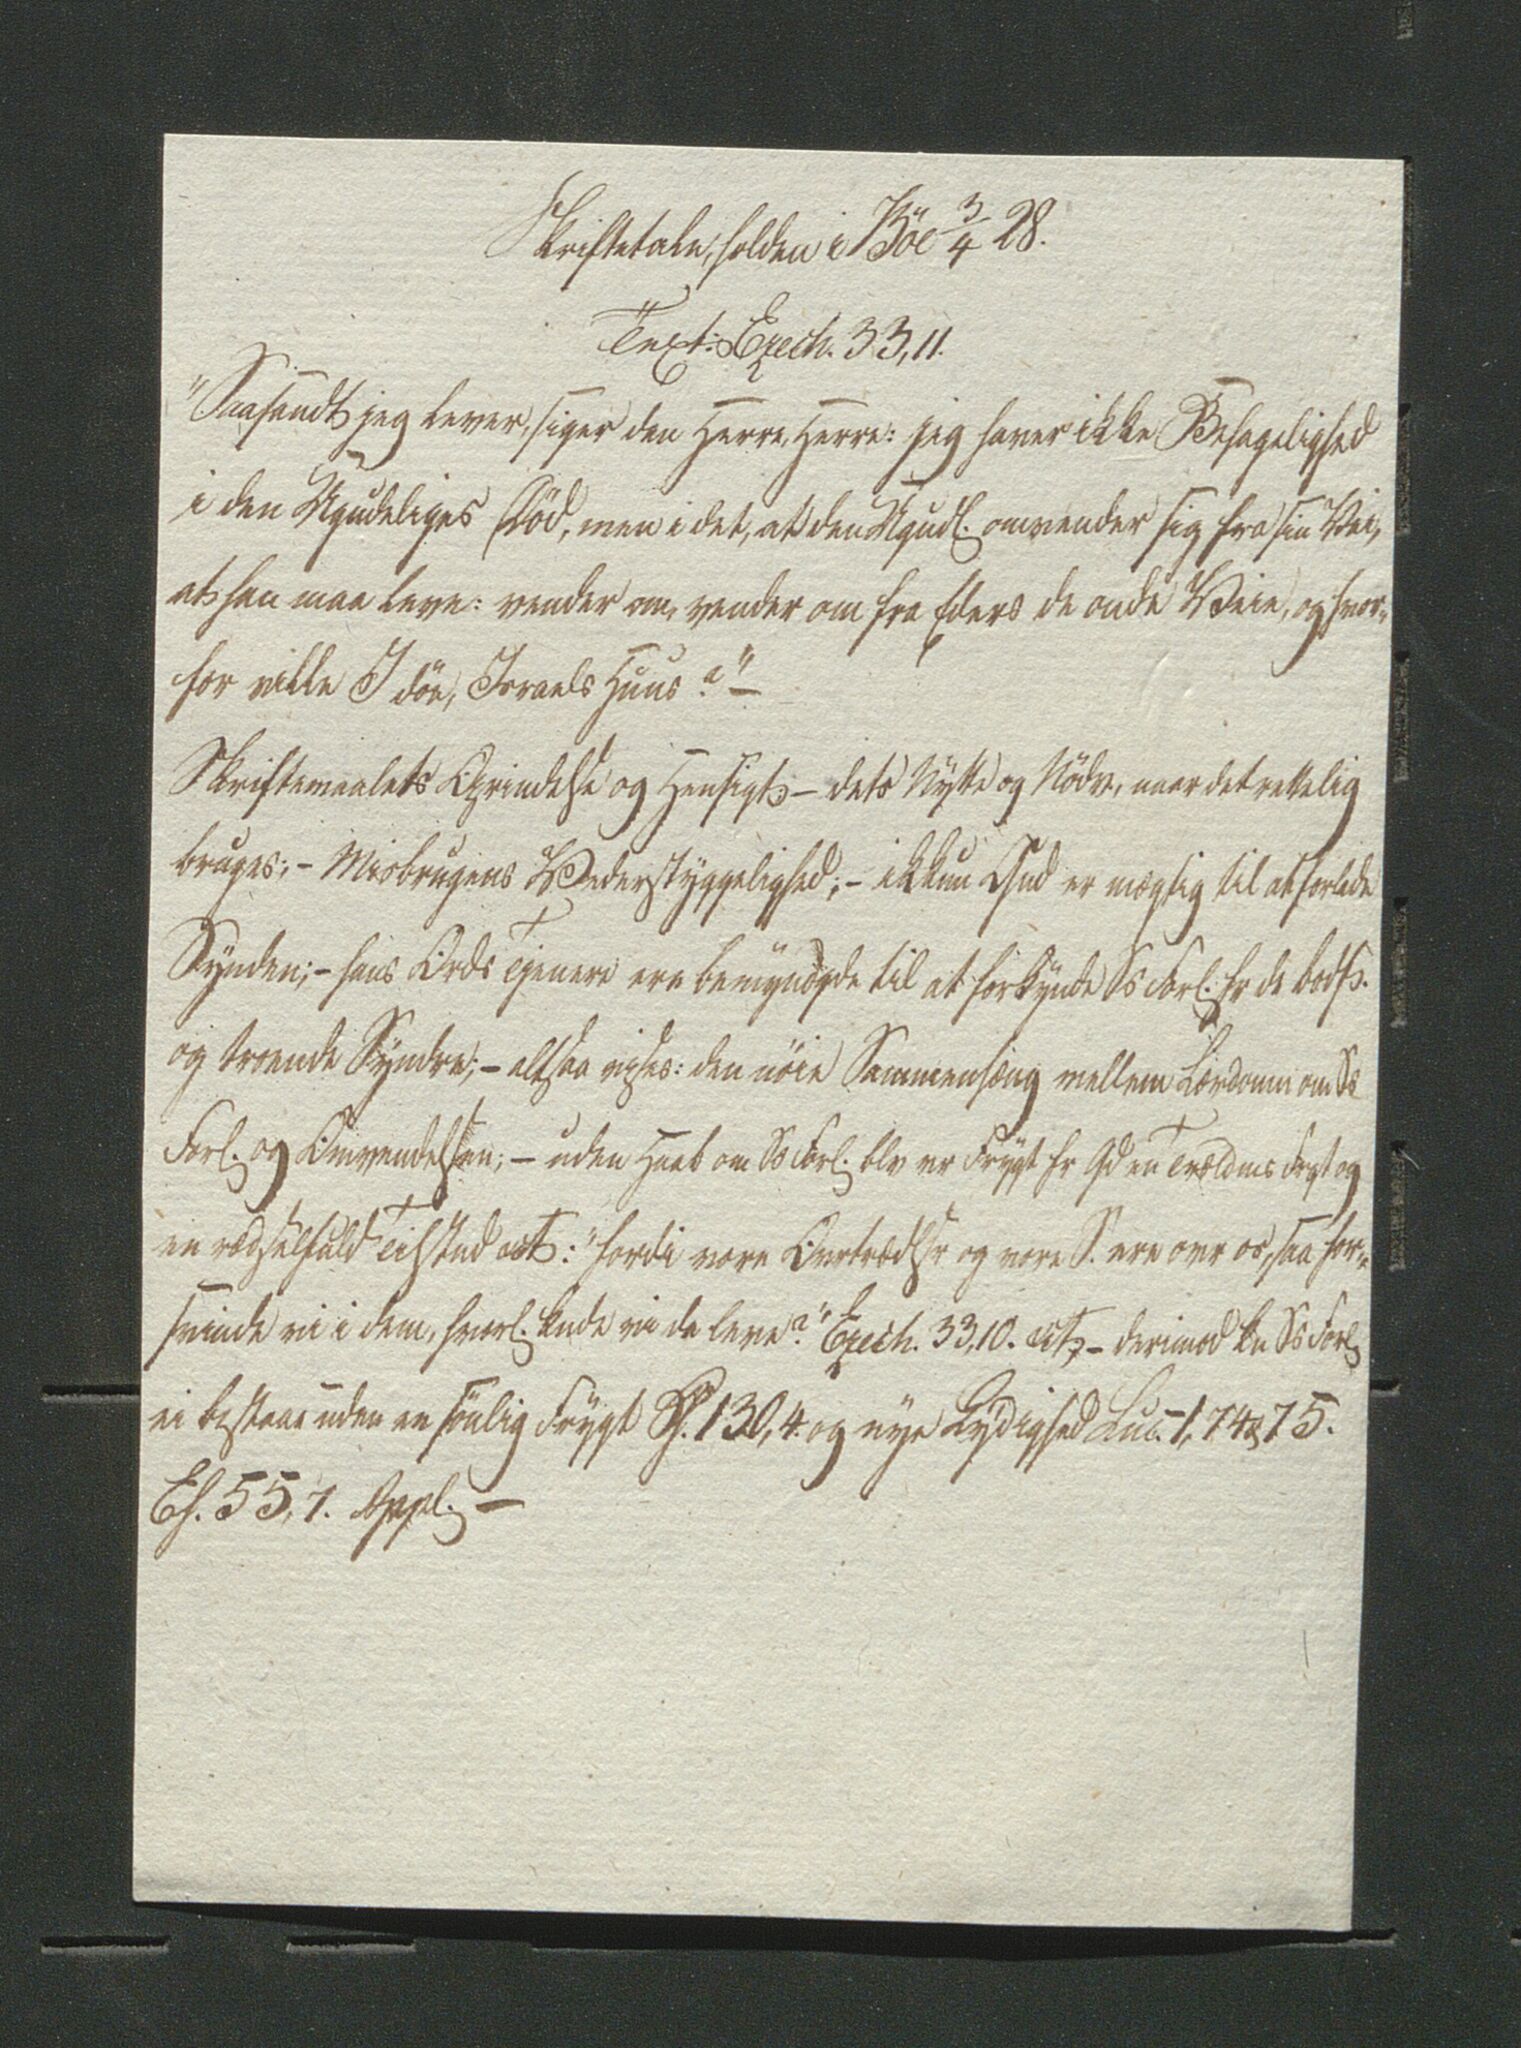 Skriftetale, holden i Böe 3/4 28.
Text: Ezech. 33,11.
"Saasandt jeg lever, siger den Herre, Herre: jeg haver ikke Behagelighed
i den Ugudeliges Död, men i det, at den Ugudl. omvender sig fra sin Vei,
at han maa leve: vender om, vender om fra Eders de onde Veie, og hvor-
for ville I döe, Israels Huus?" —
Skriftemaalets Oprindelse og Hensigt – dets Nytte og Nödv. naar det rettelig
bruges; – Misbrugens Vederstyggelighed; – ikkun Gud er mægtig til at forlade
Synden; – hans Ords Tjenere ere bemyndigde til at forkynde Ss Forl. fr de bodf.
og troende Syndre; – altsaa vises: den nöie Sammenhæng mellem Lærdomm om Ss
Forl. og Omvendelsen; – uden Haab om Ss Forl. blv vr Frygt fr Gd en Trældms Frgt og
en rædselfuld Tilstand: "fordi vore Ovrtrædlsr og vore S. ere ovr os, saa for-
svinde vi i dem, hvorl. kunde vi da leve?" Ezech. 33,10. – derimod kn Ss Forl.
ei bestaae uden en sönlig Frygt Ps. 130,4. og nye Lydighed Luc. 1,74 & 75.
Es. 55,7. Appl. —